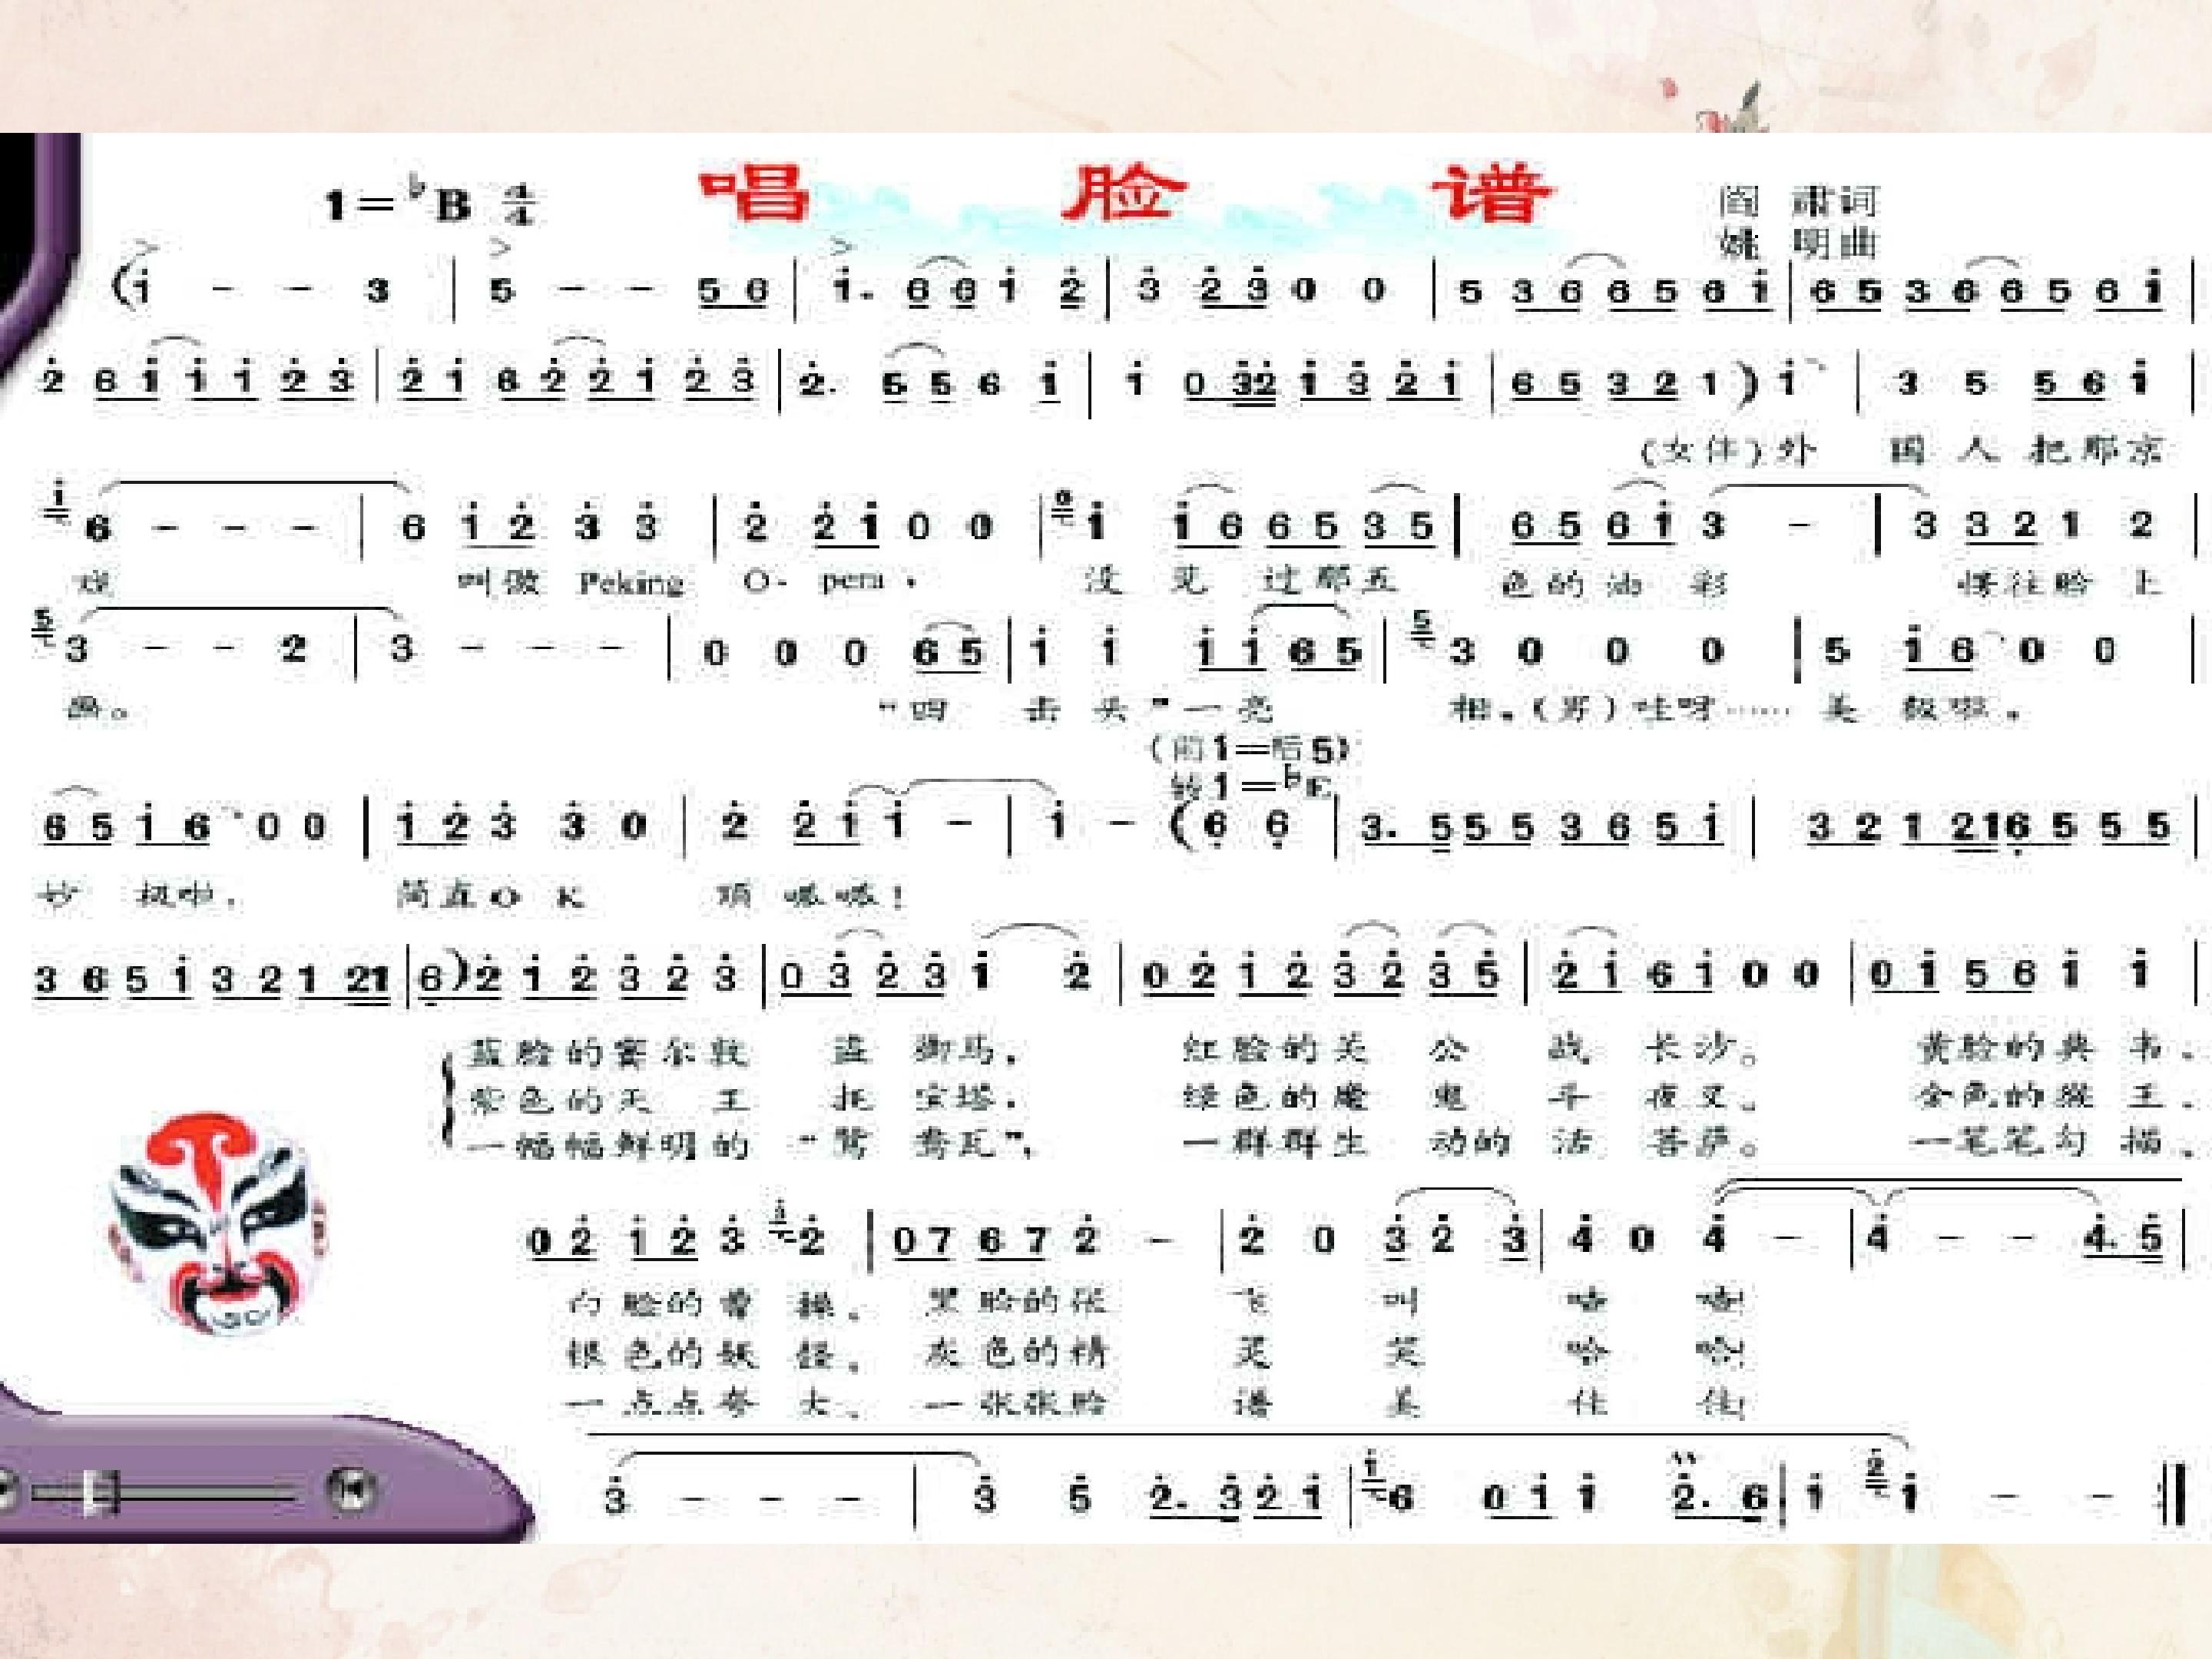 唱 脸 谱
1=♭B 4/4
阎 肃词
姚 明曲
(i̇ - - 3 | 5 - - 5 6 | i̇. 6 6 i̇ 2̇ | 3̇ 2̇ 3̇ 0 0 | 5 3 6 6 5 6 i̇ | 6 5 3 6 6 5 6 i̇ |
2̇ 6 i̇ i̇ i̇ 2̇ 3̇ | 2̇ i̇ 6 2̇ 2̇ i̇ 2̇ 3̇ | 2̇. 5 5 6 i̇ | i̇ 0 3̇2̇ i̇ 3̇ 2̇ i̇ | 6 5 3 2 1 ) i̇ | 3 5 5 6 i̇ |
(女伴)外 国 人 把那京
6 - - - | 6 i̇ 2̇ 3̇ 3̇ | 2̇ 2̇ i̇ 0 0 | i̇ i̇ 6 6 5 3 5 | 6 5 6 i̇ 3 - | 3 3 2 1 2 |
戏 叫做 Peking O- pera, 没 见 过那五 色的油 彩 愣往脸 上
3 - - 2 | 3 - - - | 0 0 0 6 5 | i̇ i̇ i̇ i̇ 6 5 | 3 0 0 0 | 5 i̇ 6 0 0 |
画。 “四 击 头”一亮 相,(男)哇呀…… 美 极啦,
(前1=后5)
转1=♭E
6 5 i̇ 6 0 0 | i̇ 2̇ 3̇ 3̇ 0 | 2̇ 2̇ i̇ i̇ - | i̇ - (6̣ 6̣ | 3. 5 5 5 3 6 5 i̇ | 3 2 1 216̣ 5 5 5 |
妙 极啦, 简直O K 顶 呱呱!
3 6 5 i̇ 3 2 1 21 | 6̣)2̇ i̇ 2̇ 3̇ 2̇ 3̇ | 0 3̇ 2̇ 3̇ i̇ 2̇ | 0 2̇ i̇ 2̇ 3̇ 2̇ 3̇ 5̇ | 2̇ i̇ 6 i̇ 0 0 | 0 i̇ 5 6 i̇ i̇ |
蓝脸的窦尔敦 盗 御马, 红脸的关 公 战 长沙。 黄脸的典 韦、
紫色的天 王 托 宝塔, 绿色的魔 鬼 斗 夜叉。 金色的猴 王、
一幅幅鲜明的 “鸳 鸯瓦”, 一群群生 动的 活 菩萨。 一笔笔勾 描、
0 2̇ i̇ 2̇ 3̇ 2̇ | 0 7 6 7 2̇ - | 2̇ 0 3̇ 2̇ 3̇ | 4̇ 0 4̇ - | 4̇ - - 4̇. 5̇ |
白 脸的曹 操、 黑 脸的张 飞 叫 喳 喳!
银 色的妖 怪、 灰 色的精 灵 笑 哈 哈!
一 点点夸 大、 一 张张脸 谱 美 佳 佳!
3̇ - - - | 3̇ 5̇ 2̇. 3̇ 2̇ i̇ | 6 0 i̇ i̇ 2̇. 6 | i̇ i̇ - - :‖